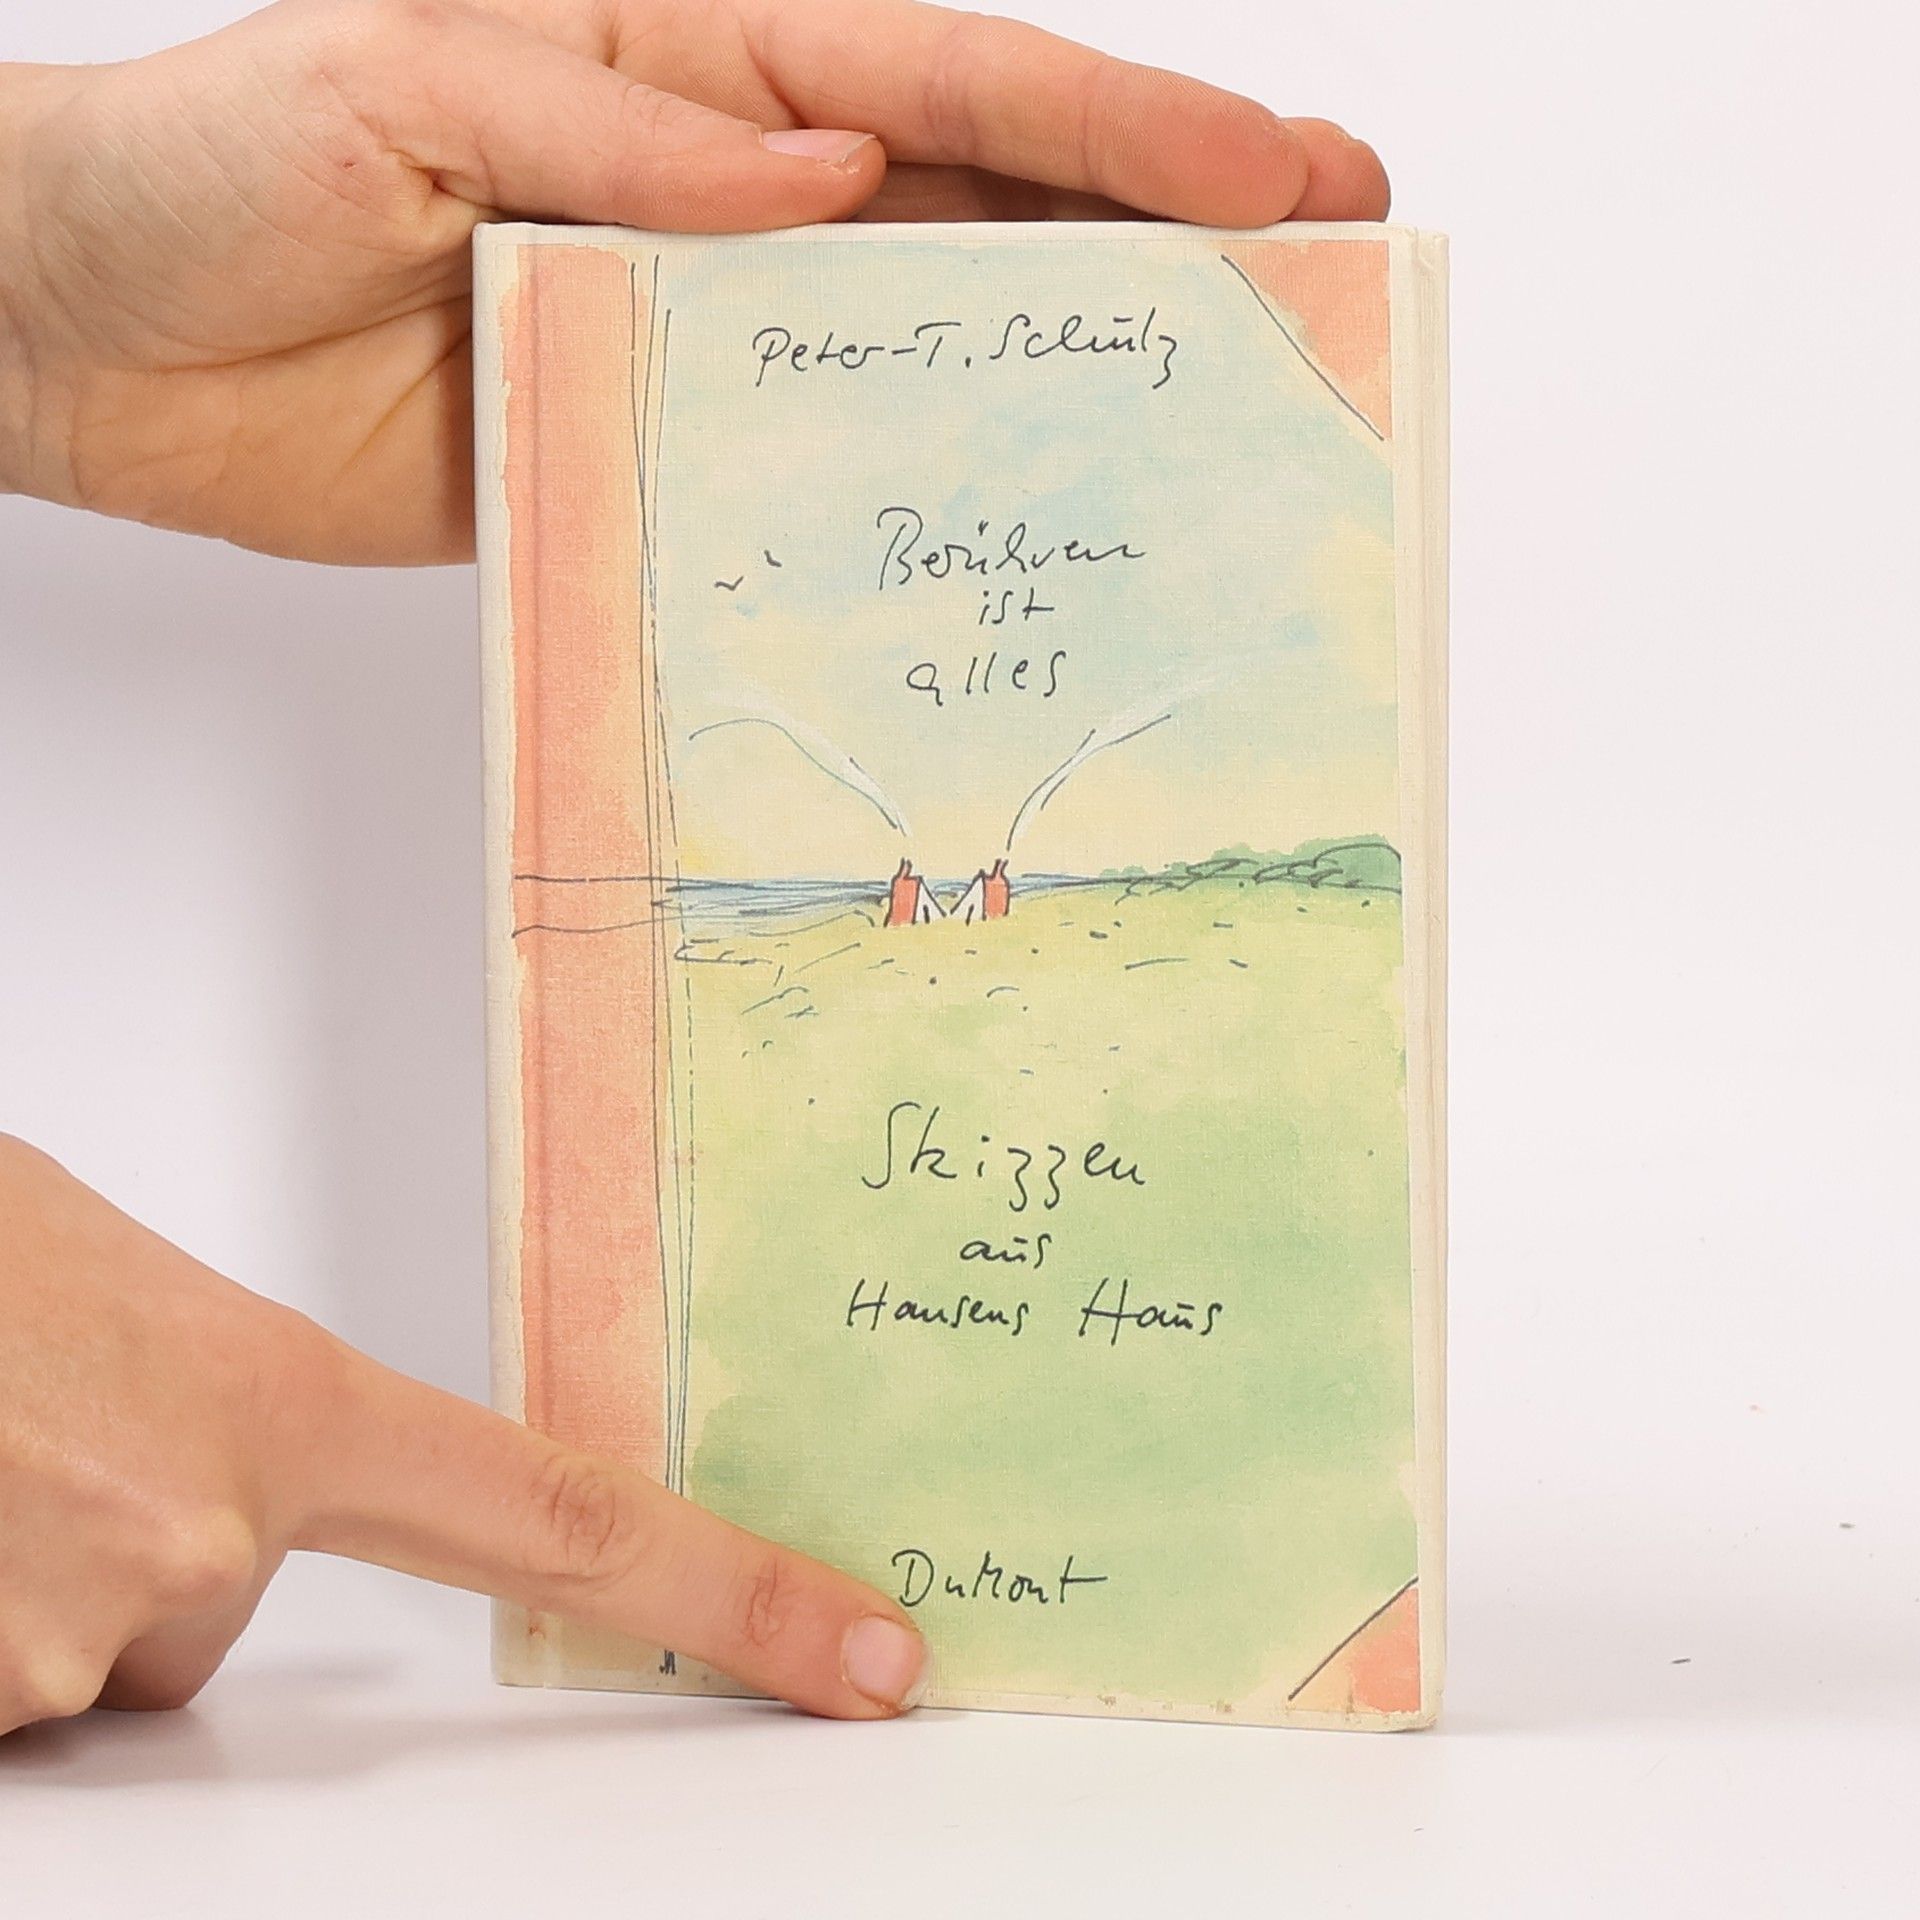 Peter-T. Schulz
Berühren
ist
alles
Skizzen
aus
Hansens Haus
DuMont